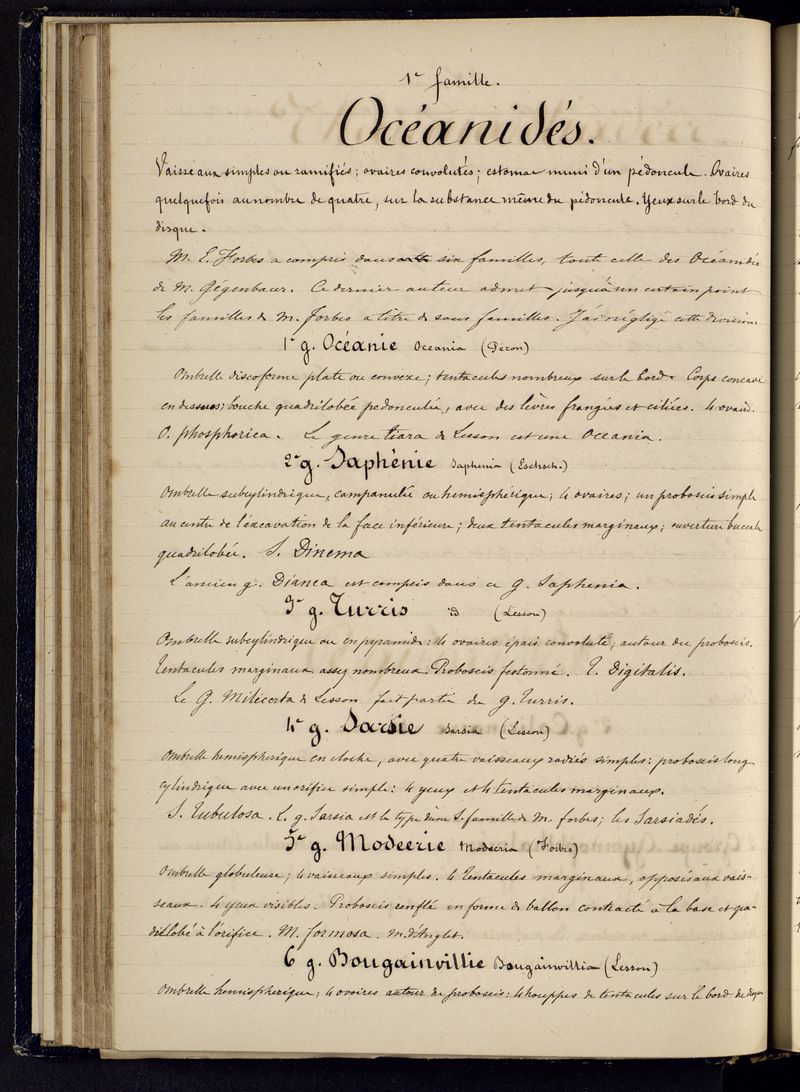 1e famille.
Océanidés.
Vaisseaux simples ou ramifiés; ovaires convolutés; estomac muni d'un pédoncule. Ovaires
quelquefois au nombre de quatre, sur la substance même du pédoncule. Yeux sur le bord du
disque.
M. E. Forbes a compris dans six familles, toute celle des Océanidés
de M. Gegenbaur. Ce dernier auteur admet jusqu'à un certain point
les familles de M. Forbes a titre de sous familles. J'ai négligé cette division.
1e g. Océanie Oceania (Péron)
Ombrelle discoforme plate ou convexe; tentacules nombreux sur le bord. Corps concave
en dessous; bouche quadrilobée pedonculée, avec des lèvres frangées et ciliées. 4 ovair.
O. phosphorica. Le genre tiara de Lesson est une Oceania.
2e g. Saphénie Saphenia (Eschsch.)
Ombrelle subcylindrique, campanulée ou hemisphérique; 4 ovaires; un proboscis simple
au centre de l'excavation de la face inférieure; deux tentacules marginaux; ouverture buccale
quadrilobée. S. Dinema
L'ancien g. Dianea est compris dans ce g. Saphenia.
3e g. Turris id (Lesson)
Ombrelle subcylindrique ou en pyramide: 4 ovaires épais convoluté, autour du proboscis.
Tentacules marginaux assez nombreux. Proboscis festonné. T. Digitalis.
Le G. Milicerta de Lesson fait partie du g. Turris.
4e g. Sarsie Sarsia (Lesson)
Ombrelle hemispherique en cloche, avec quatre vaisseaux radiés simples: proboscis long
cylindrique avec un orifice simple: 4 yeux et 4 tentacules marginaux.
S. Tubulosa. Le g. Sarsia est le type d'une S. famille de M. forbes; les Sarsiadés.
5e g. Modeerie Modeeria (Forbes)
Ombrelle globuleuse; 4 vaisseaux simples. 4 Tentacules marginaux, opposés aux vais-
seaux. 4 yeux visibles. Proboscis renflé en forme de ballon contracté à la base et qua-
drilobé à l'orifice. M. formosa. m. d'Anglet.
6 g. Bougainvillie Bougainvillia (Lesson)
Ombrelle hemispherique; 4 ovaires autour du proboscis: 4 houppes de tentacules sur le bord du disque